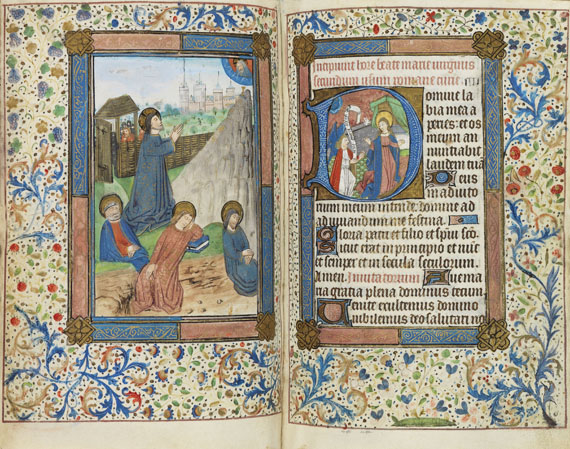 Incipiunt hore beate marie virginis
secundum usum romane curie
Domine la
bia mea a
peries: et os
meum an
nuntiabit
laudem tuã
Deus
in adiuto
rium meum intende. domine ad
adiuuandum me festina.
Gloria patri et filio et spũi sc̃o
Sicut erat in principio et nũc
et semper et in secula seculorum.
amen. Inuitatorium Aue ma
ria gratia plena dominus tecum
Uenite exultemus domino
iubilemus deo salutari nr̃o